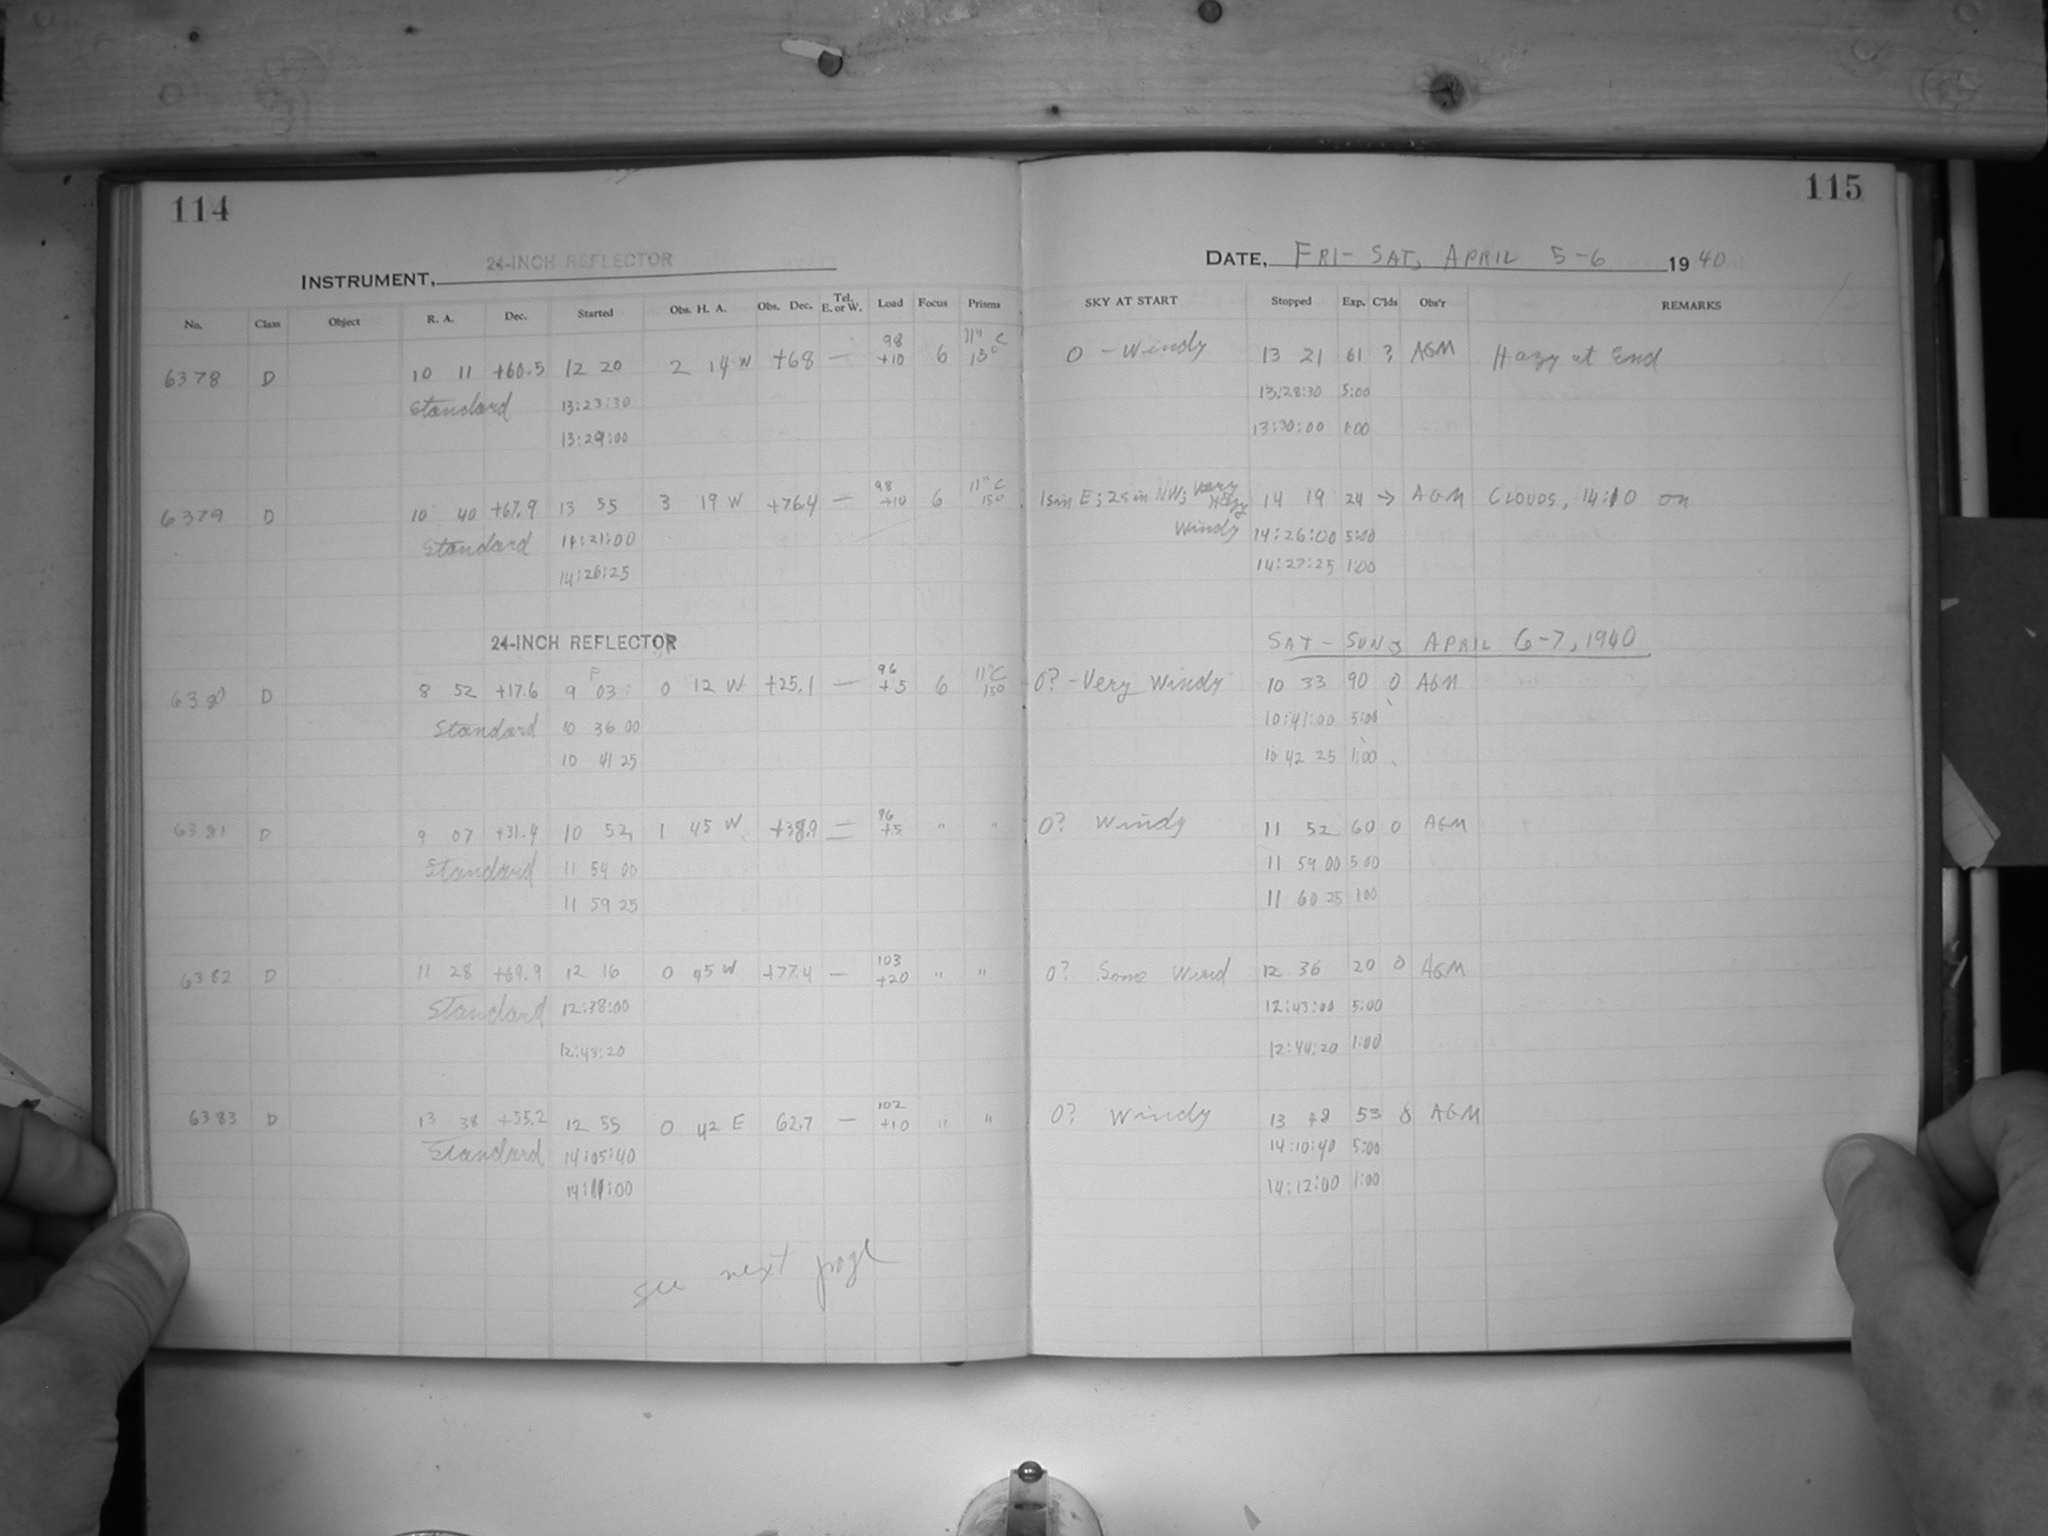 114
INSTRUMENT, 24-INCH REFLECTOR
No. Class Object R. A. Dec. Started Obs. H. A. Obs. Dec. Tel. E. or W. Load Focus Prisms
6378 D 10 11 +60.5 12 20 2 14 W +68 — 98 +10 6 11" C 150
Standard 13:23:30
13:29:00
6379 D 10 40 +67.9 13 55 3 19 W +76.4 — 98 +10 6 11" C 150
Standard 14:21:00
14:26:25
24-INCH REFLECTOR
6380 D 8 52 +17.6 9 03 0 12 W +25.1 — 96 +5 6 11" C 150
Standard 10 36 00
10 41 25
6381 D 9 07 +31.4 10 52 1 45 W +38.9 — 96 +5 " "
Standard 11 54 00
11 59 25
6382 D 11 28 +69.9 12 16 0 45 W +77.4 — 103 +20 " "
Standard 12:38:00
12:43:20
6383 D 13 38 +55.2 12 55 0 42 E 62.7 — 102 +10 " "
Standard 14:05:40
14:11:00
see next page
115
DATE, FRI- SAT, APRIL 5-6 1940
SKY AT START Stopped Exp. C'lds Obs'r REMARKS
0 - Windy 13 21 61 ? AGM Hazy at End
13:28:30 5:00
13:30:00 1:00
1s in E; 2s in NW; very Hazy Windy 14 19 24 → AGM CLOUDS, 14:10 on
14:26:00 5:00
14:27:25 1:00
SAT - SUN, APRIL 6-7, 1940
0? - Very Windy 10 33 90 0 AGM
10:41:00 5:00
10 42 25 1:00
0? Windy 11 52 60 0 AGM
11 59 00 5 00
11 60 25 1 00
0? Some Wind 12 36 20 0 AGM
12:43:00 5:00
12:44:20 1:00
0? Windy 13 48 53 AGM
14:10:40 5:00
14:12:00 1:00